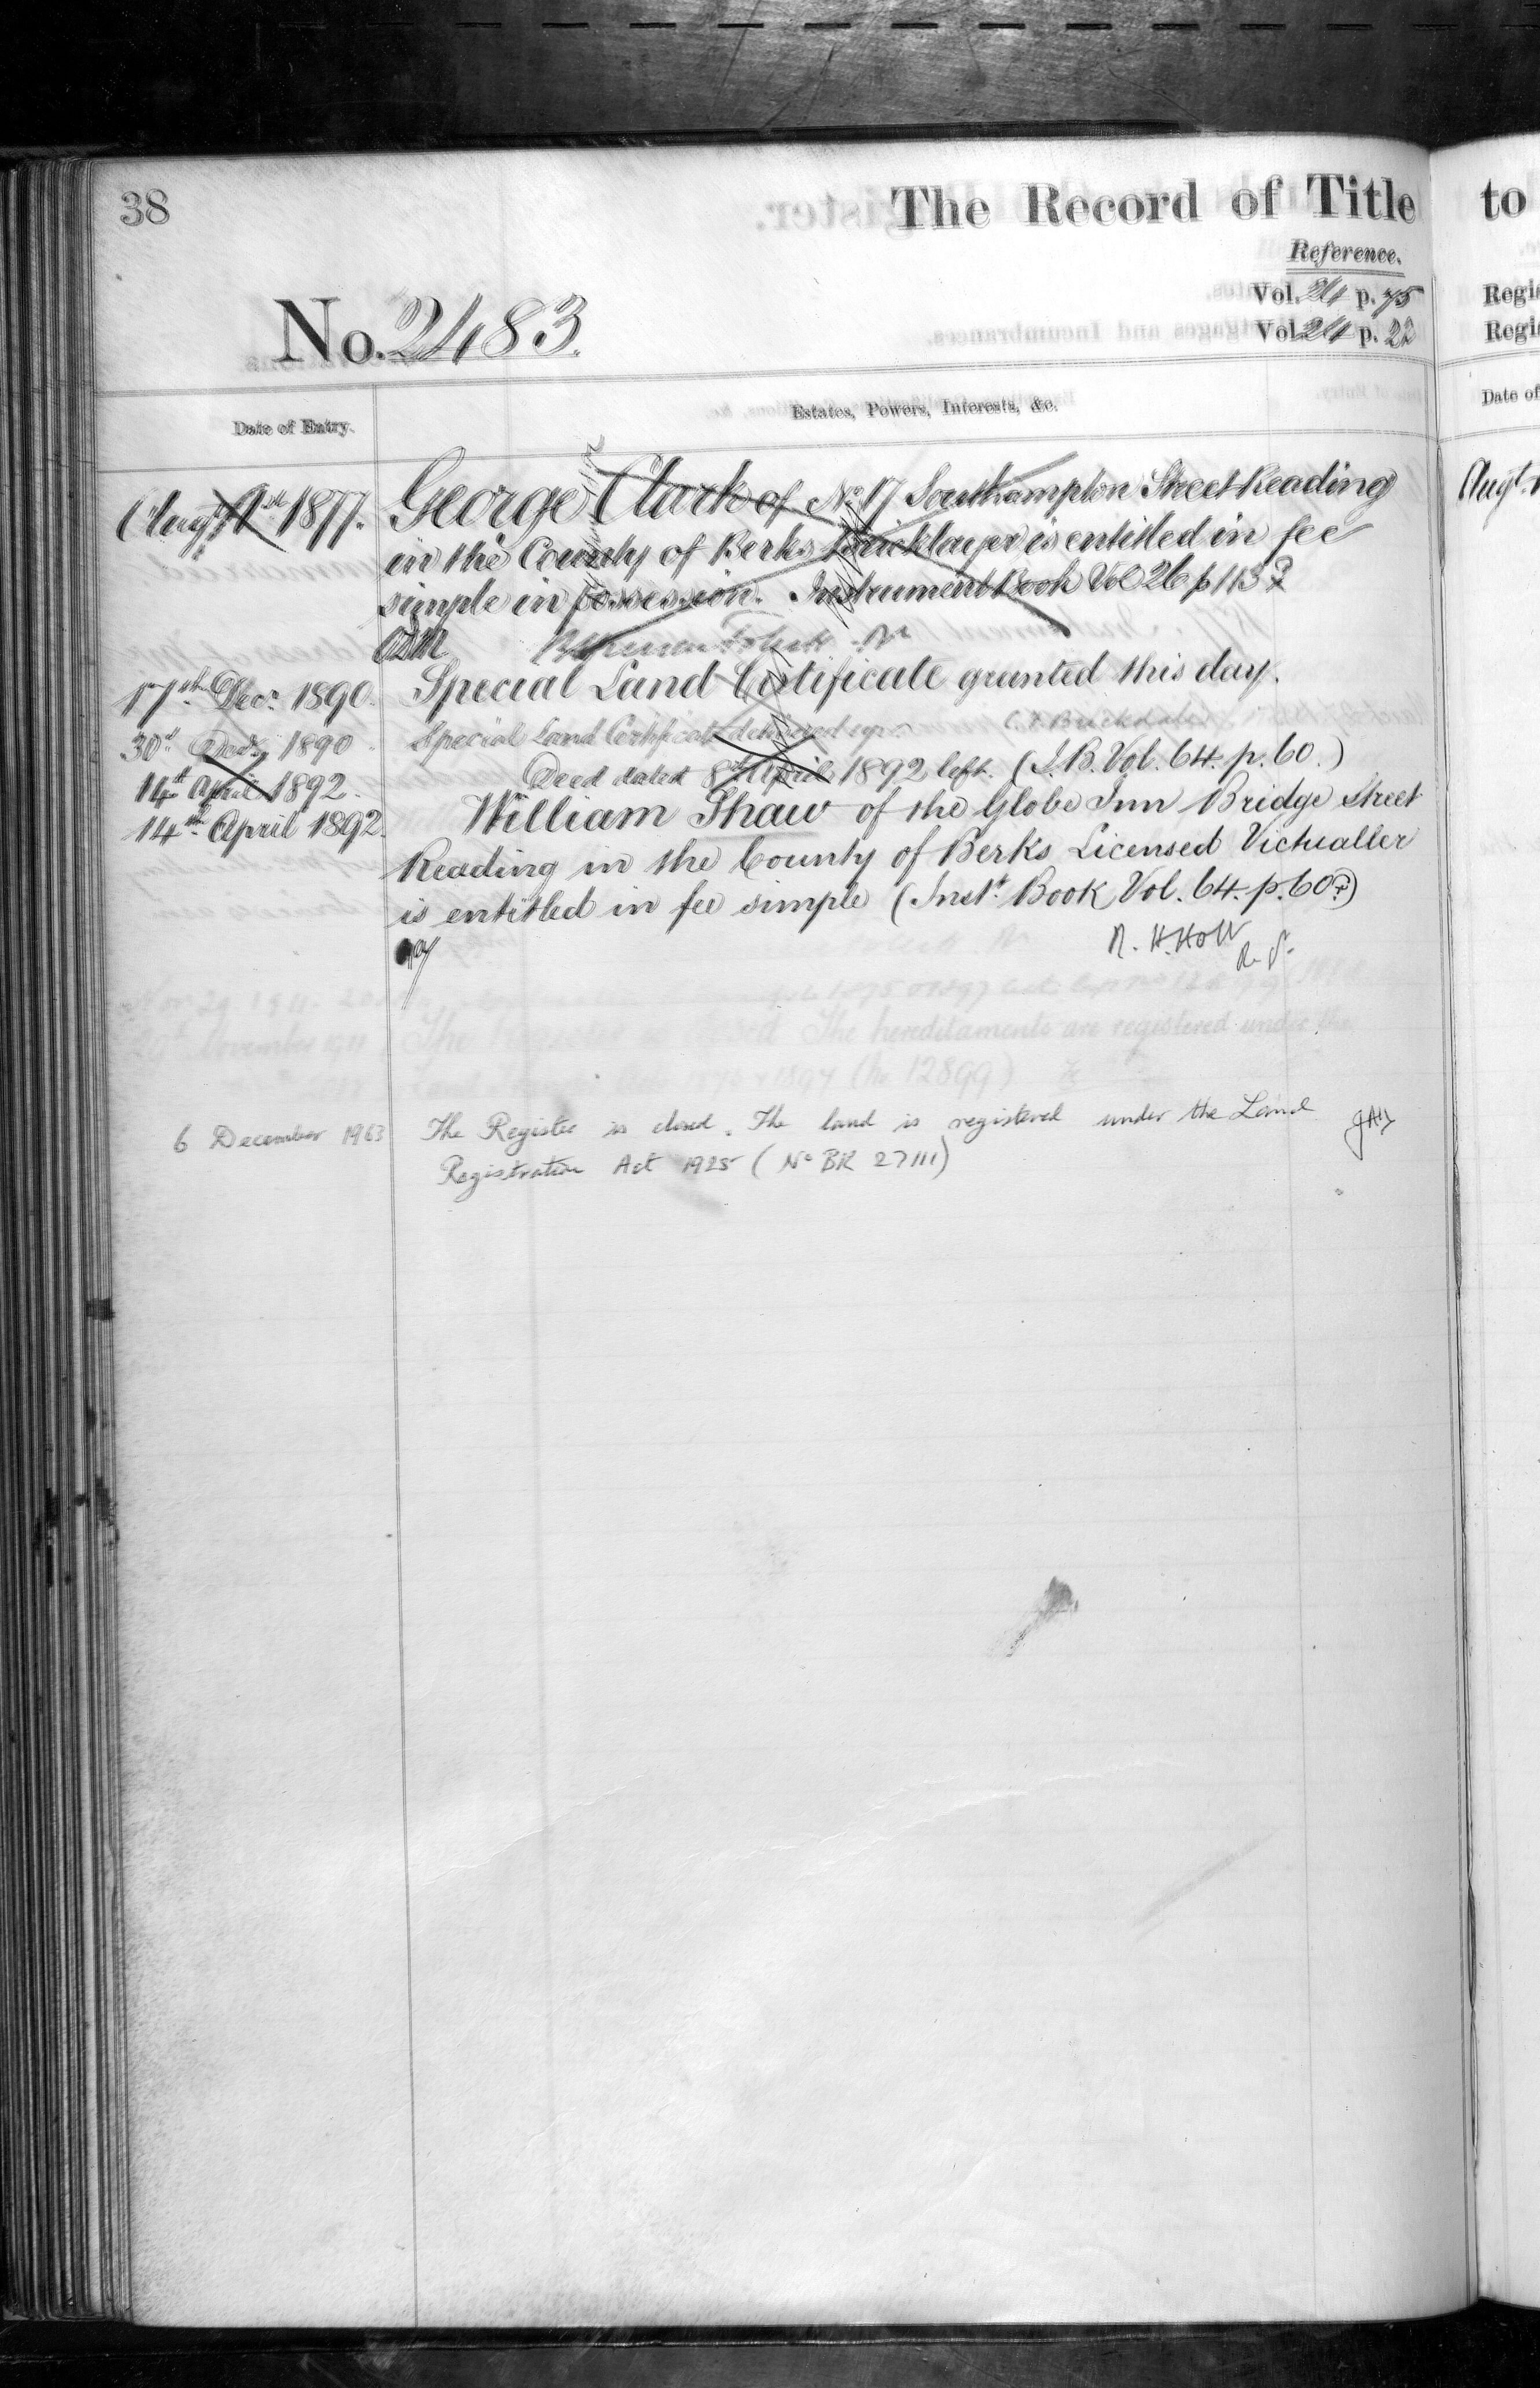 38
The Record of Title
to
Reference.
No. 2483.
Vol. 24 p. 75
Vol. 24 p. 22
Regi
Regi
Date of Entry.
Estates, Powers, Interests, &c.
Date of
Augt 1877.
George Clark of No 17 Southampton Street Reading
Augt.
in the County of Berks Bricklayer is entitled in fee
simple in possession. Instrument Book Vol 26 p 113
17th Decr. 1890.
Special Land Certificate granted this day.
30th 1890
Special Land Certificate delivered up.
C. F. Brickdale
14th April 1892.
Deed dated 8th April 1892 left. (I.B. Vol. 64. p. 60.)
14th April 1892.
William Shaw of the Globe Inn Bridge Street
Reading in the County of Berks Licensed Victualler
is entitled in fee simple (Inst. Book Vol. 64. p. 60)
R. H. Holt
November 1911 The Register is closed The hereditaments are registered under the
Land Acts 1875 & 1897 (No 12899)
6 December 1963
The Register is closed. The land is registered under the Land
Registration Act 1925 (No BK 27111)